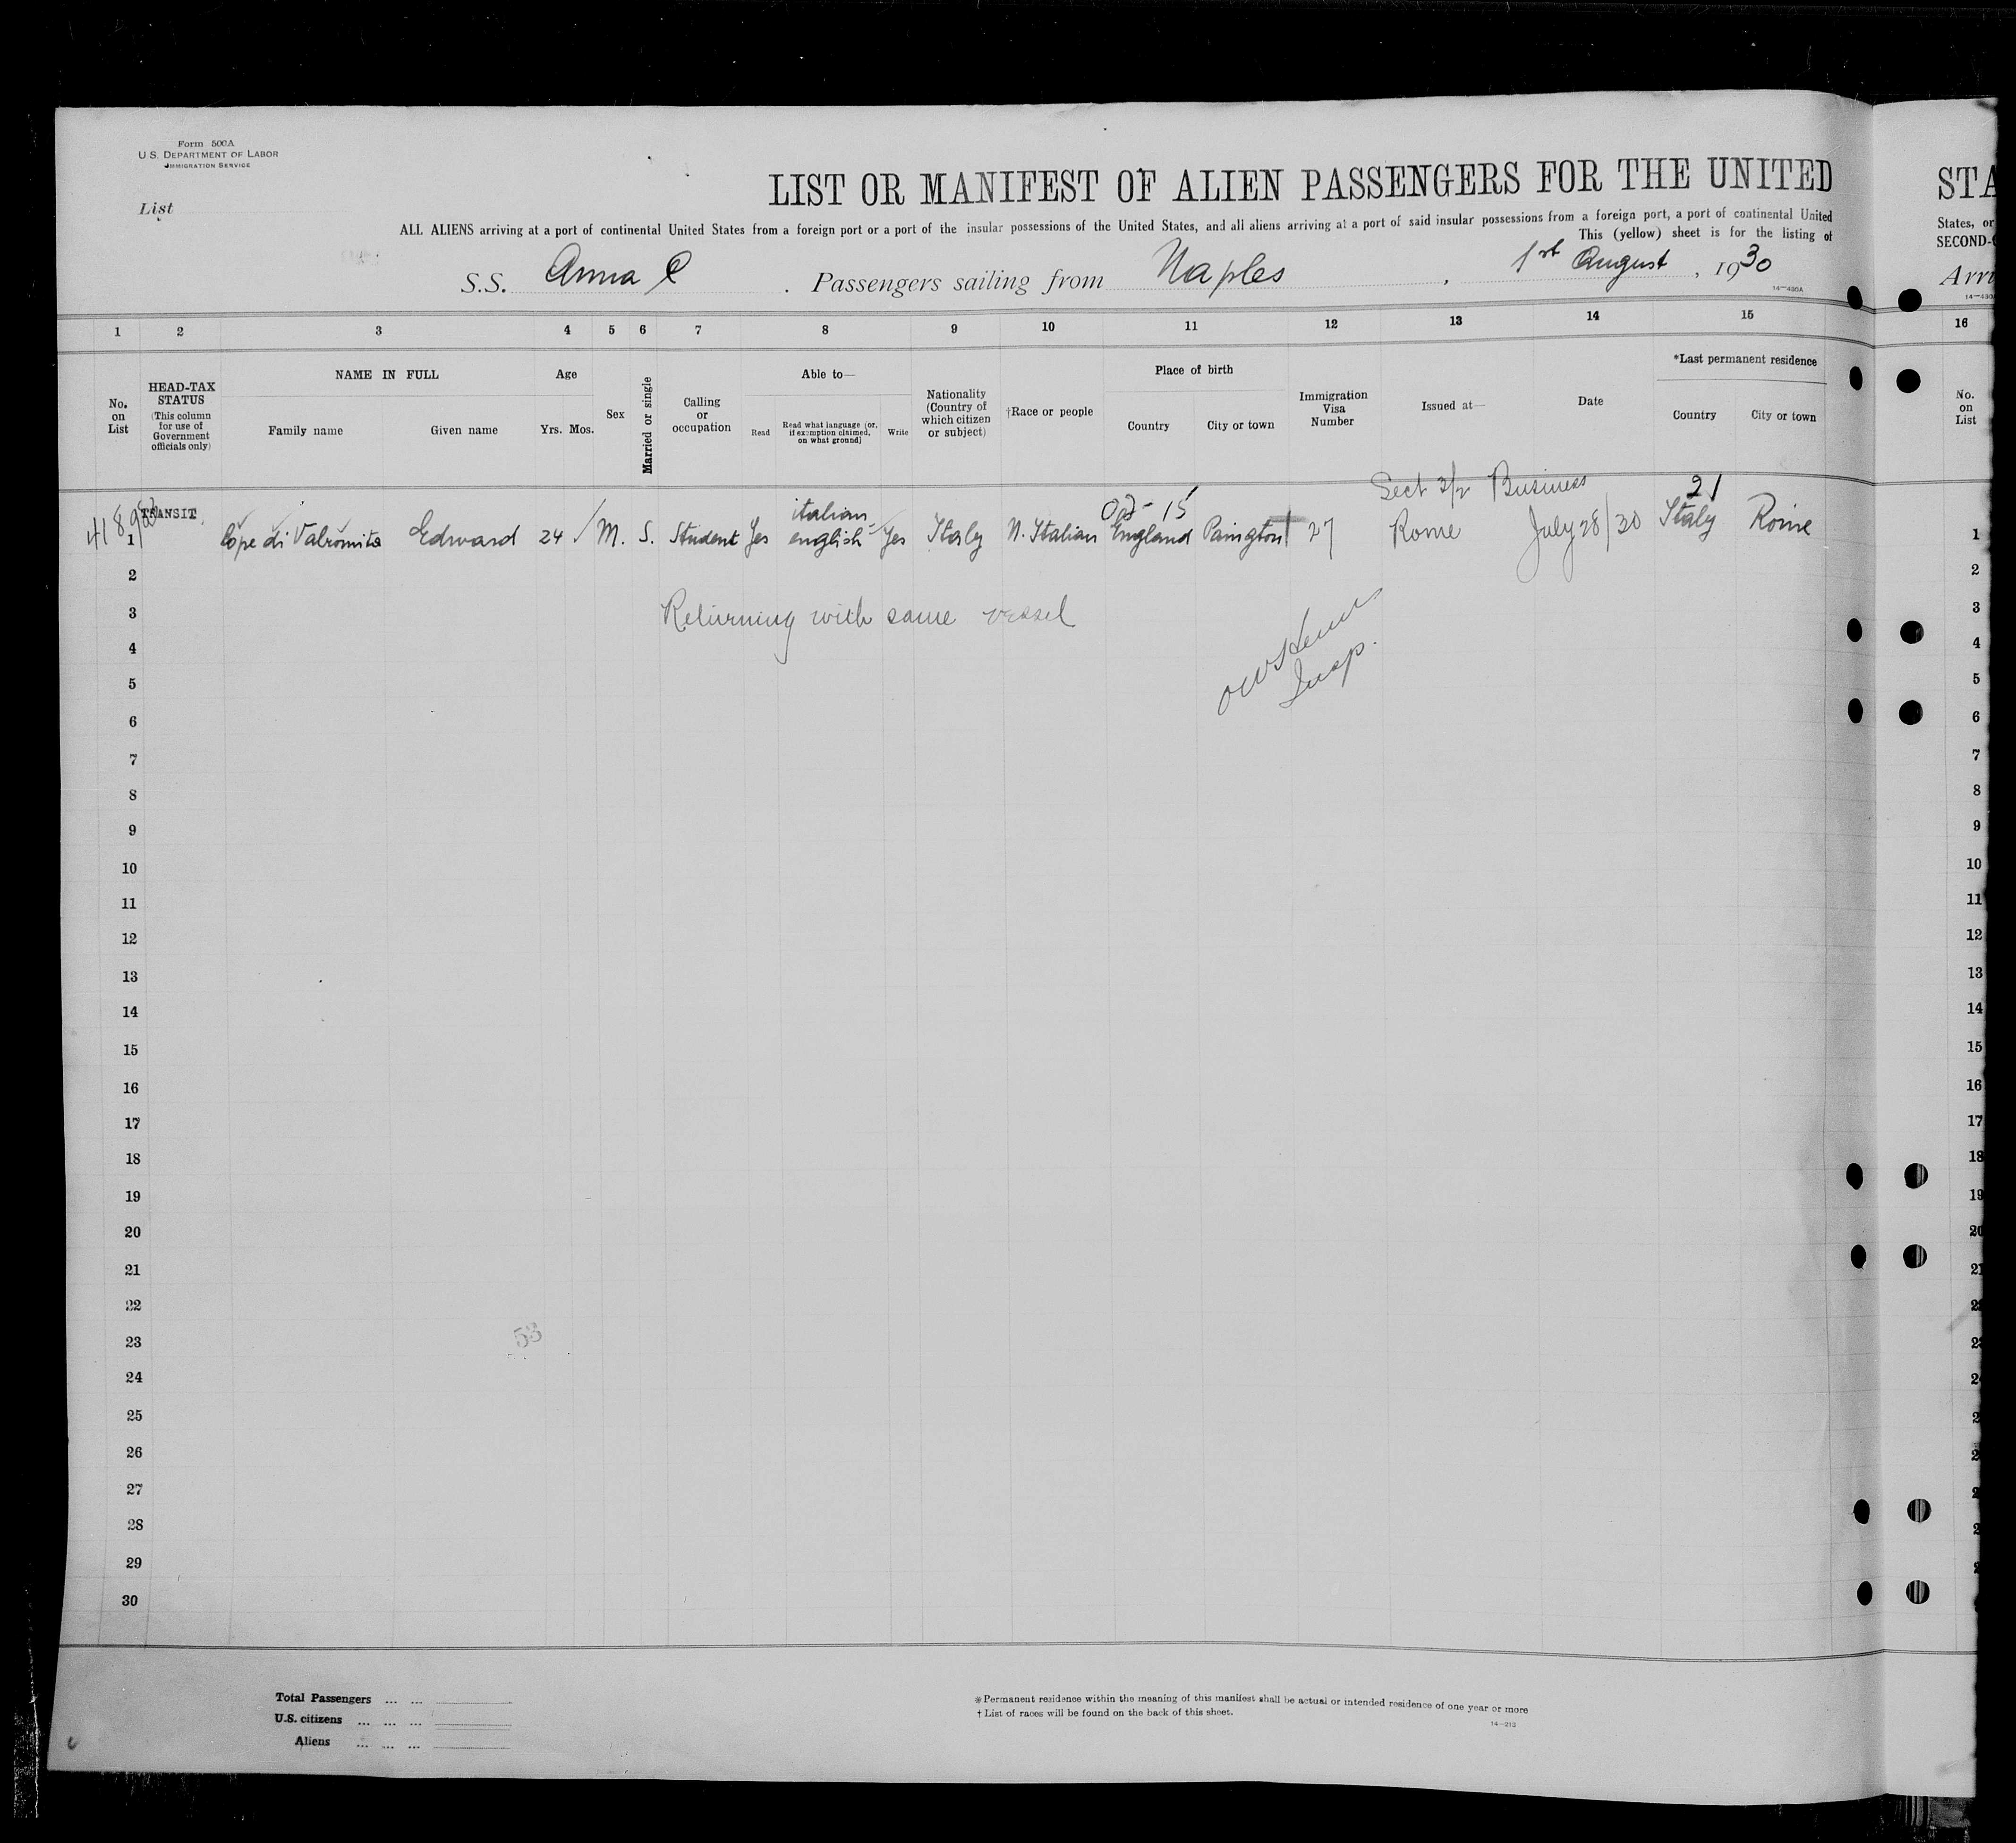 Form 500A
U.S. DEPARTMENT OF LABOR
IMMIGRATION SERVICE
List
LIST OR MANIFEST OF ALIEN PASSENGERS FOR THE UNITED
STA
ALL ALIENS arriving at a port of continental United States from a foreign port or a port of the insular possessions of the United States, and all aliens arriving at a port of said insular possessions from a foreign port, a port of continental United
States, or
This (yellow) sheet is for the listing of
SECOND-
S.S. Anna C. Passengers sailing from Naples, 1st August, 1930
Arri
14-430A
1 2 3 4 5 6 7 8 9 10 11 12 13 14 15 16
No. on List
HEAD-TAX STATUS (This column for use of Government officials only)
NAME IN FULL
Family name
Given name
Age
Yrs. Mos.
Sex
Married or single
Calling or occupation
Able to—
Read
Read what language (or, if exemption claimed, on what ground)
Write
Nationality (Country of which citizen or subject)
†Race or people
Place of birth
Country
City or town
Immigration Visa Number
Issued at—
Date
*Last permanent residence
Country
City or town
No. on List
Sect 3/2 Business
TRANSIT
italian 21
1 di Valromita Edward 24 M. S. Student Yes english Yes Italy N. Italian England Paington 27 Rome July 28/30 Italy Rome 1
2 2
3 Returning with same vessel 3
4 4
Insp.
5 5
6 6
7 7
8 8
9 9
10 10
11 11
12 12
13 13
14 14
15 15
16 16
17 17
18 18
19 19
20 20
21 21
22
23
53
24
25
26
27
28
29
30
Total Passengers ... ...
U.S. citizens ... ... ...
Aliens ... ... ...
*Permanent residence within the meaning of this manifest shall be actual or intended residence of one year or more
† List of races will be found on the back of this sheet.
14-213